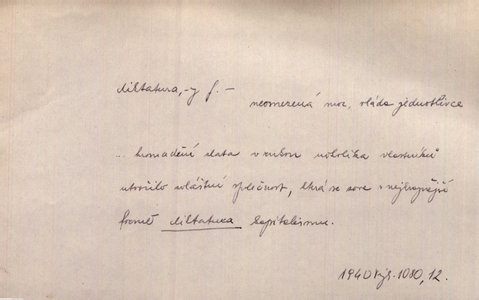 diktatura, -y f. –
neomezená moc, vláda jednotlivce
... hromadění zlata v rukou několika vlastníků
utvořilo zvláštní společnost, která se zove v nejhroznější
formě diktatura kapitalismu.
1940 1080, 12.